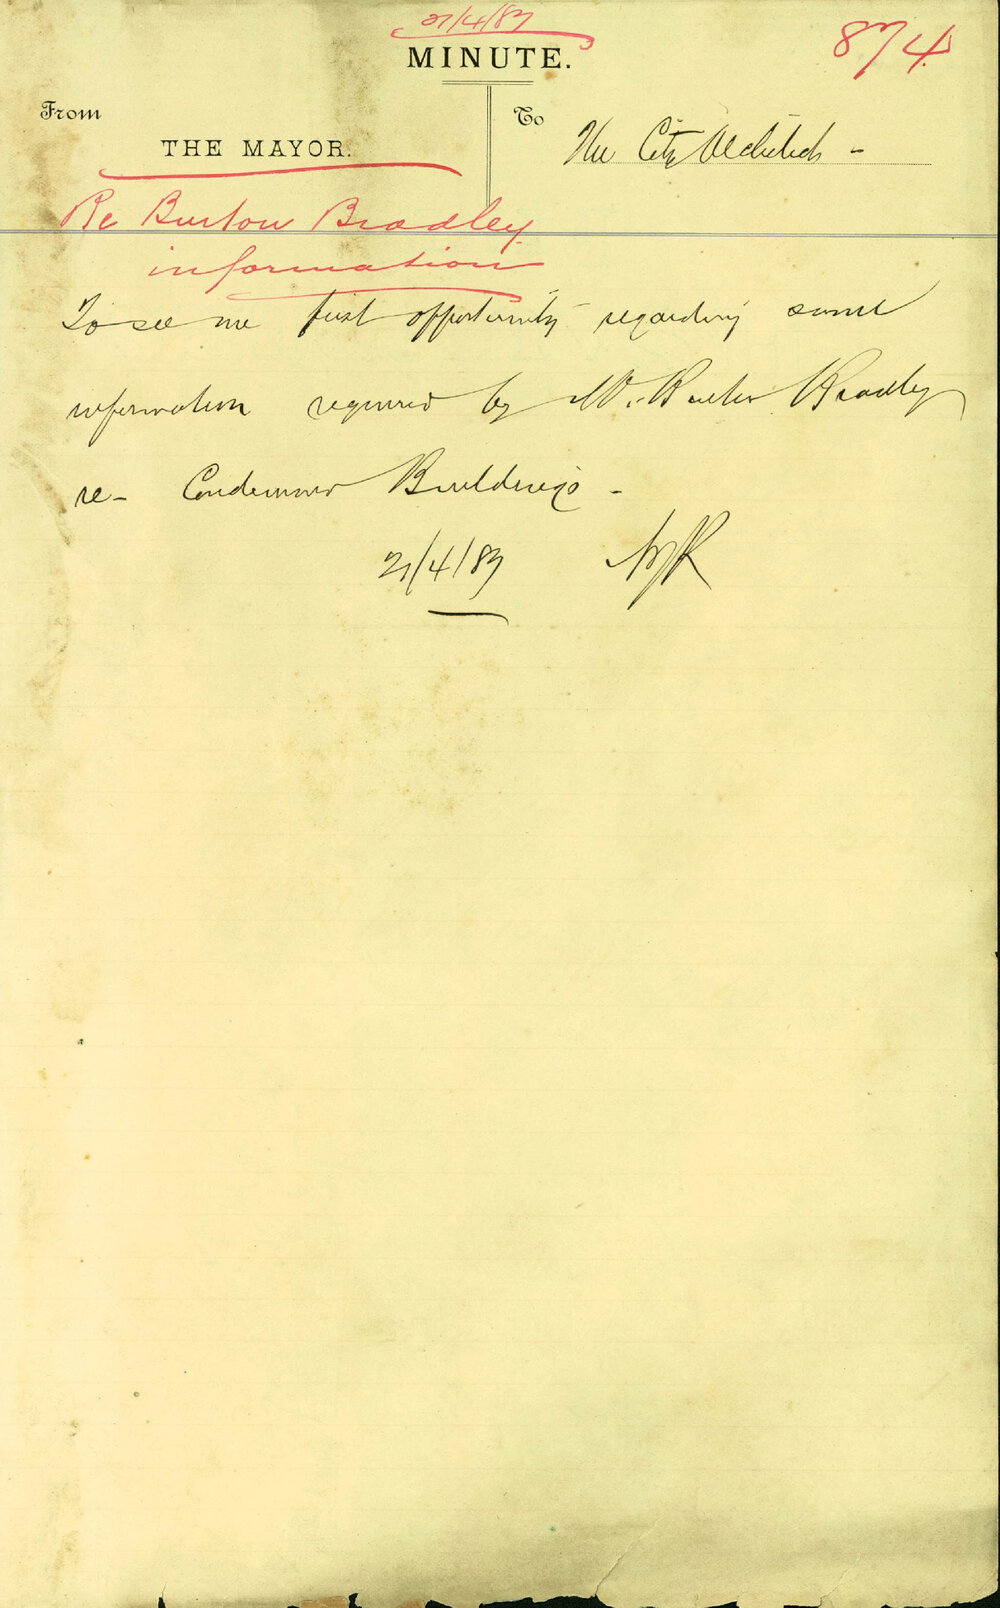 21/4/87
874
MINUTE.
From
To
THE MAYOR.
The City Architect -
Re Burton Bradley
information
To see me first opportunity regarding some
information required by Mr. Burton Bradley
re- Condemned Buildings -
21/4/87